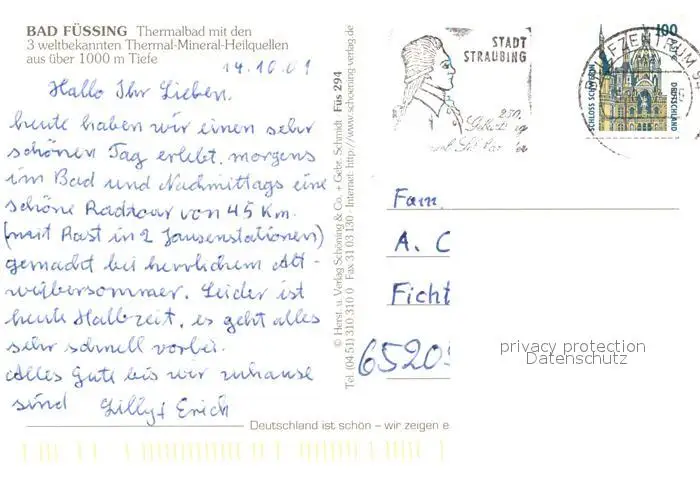 BAD FÜSSING Thermalbad mit den
3 weltbekannten Thermal-Mineral-Heilquellen
aus über 1000 m Tiefe
14.10.01
Hallo Ihr Lieben.
heute haben wir einen sehr
schönen Tag erlebt. morgens
im Bad und Nachmittags eine
schöne Radtour von 45 Km.
(mit Rast in 2 Jausenstationen)
gemacht bei herrlichem Alt-
weibersommer. Leider ist
heute Halbzeit, es geht alles
sehr schnell vorbei.
Alles Gute bis wir zuhause
sind Lilly + Erich
© Herst. u. Verlag Schöning & Co. + Gebr. Schmidt Füs 294
Tel. (04 51) 310 310 0 Fax 31 03 130 · Internet: http://www.schoening-verlag.de
STADT
STRAUBING
250.
Geburtstag
BRIEFZENTRUM 94
100
SCHLOSS SCHWERIN
DEUTSCHLAND
Fam.
A. C
Ficht
6520
privacy protection
Datenschutz
Deutschland ist schön – wir zeigen e